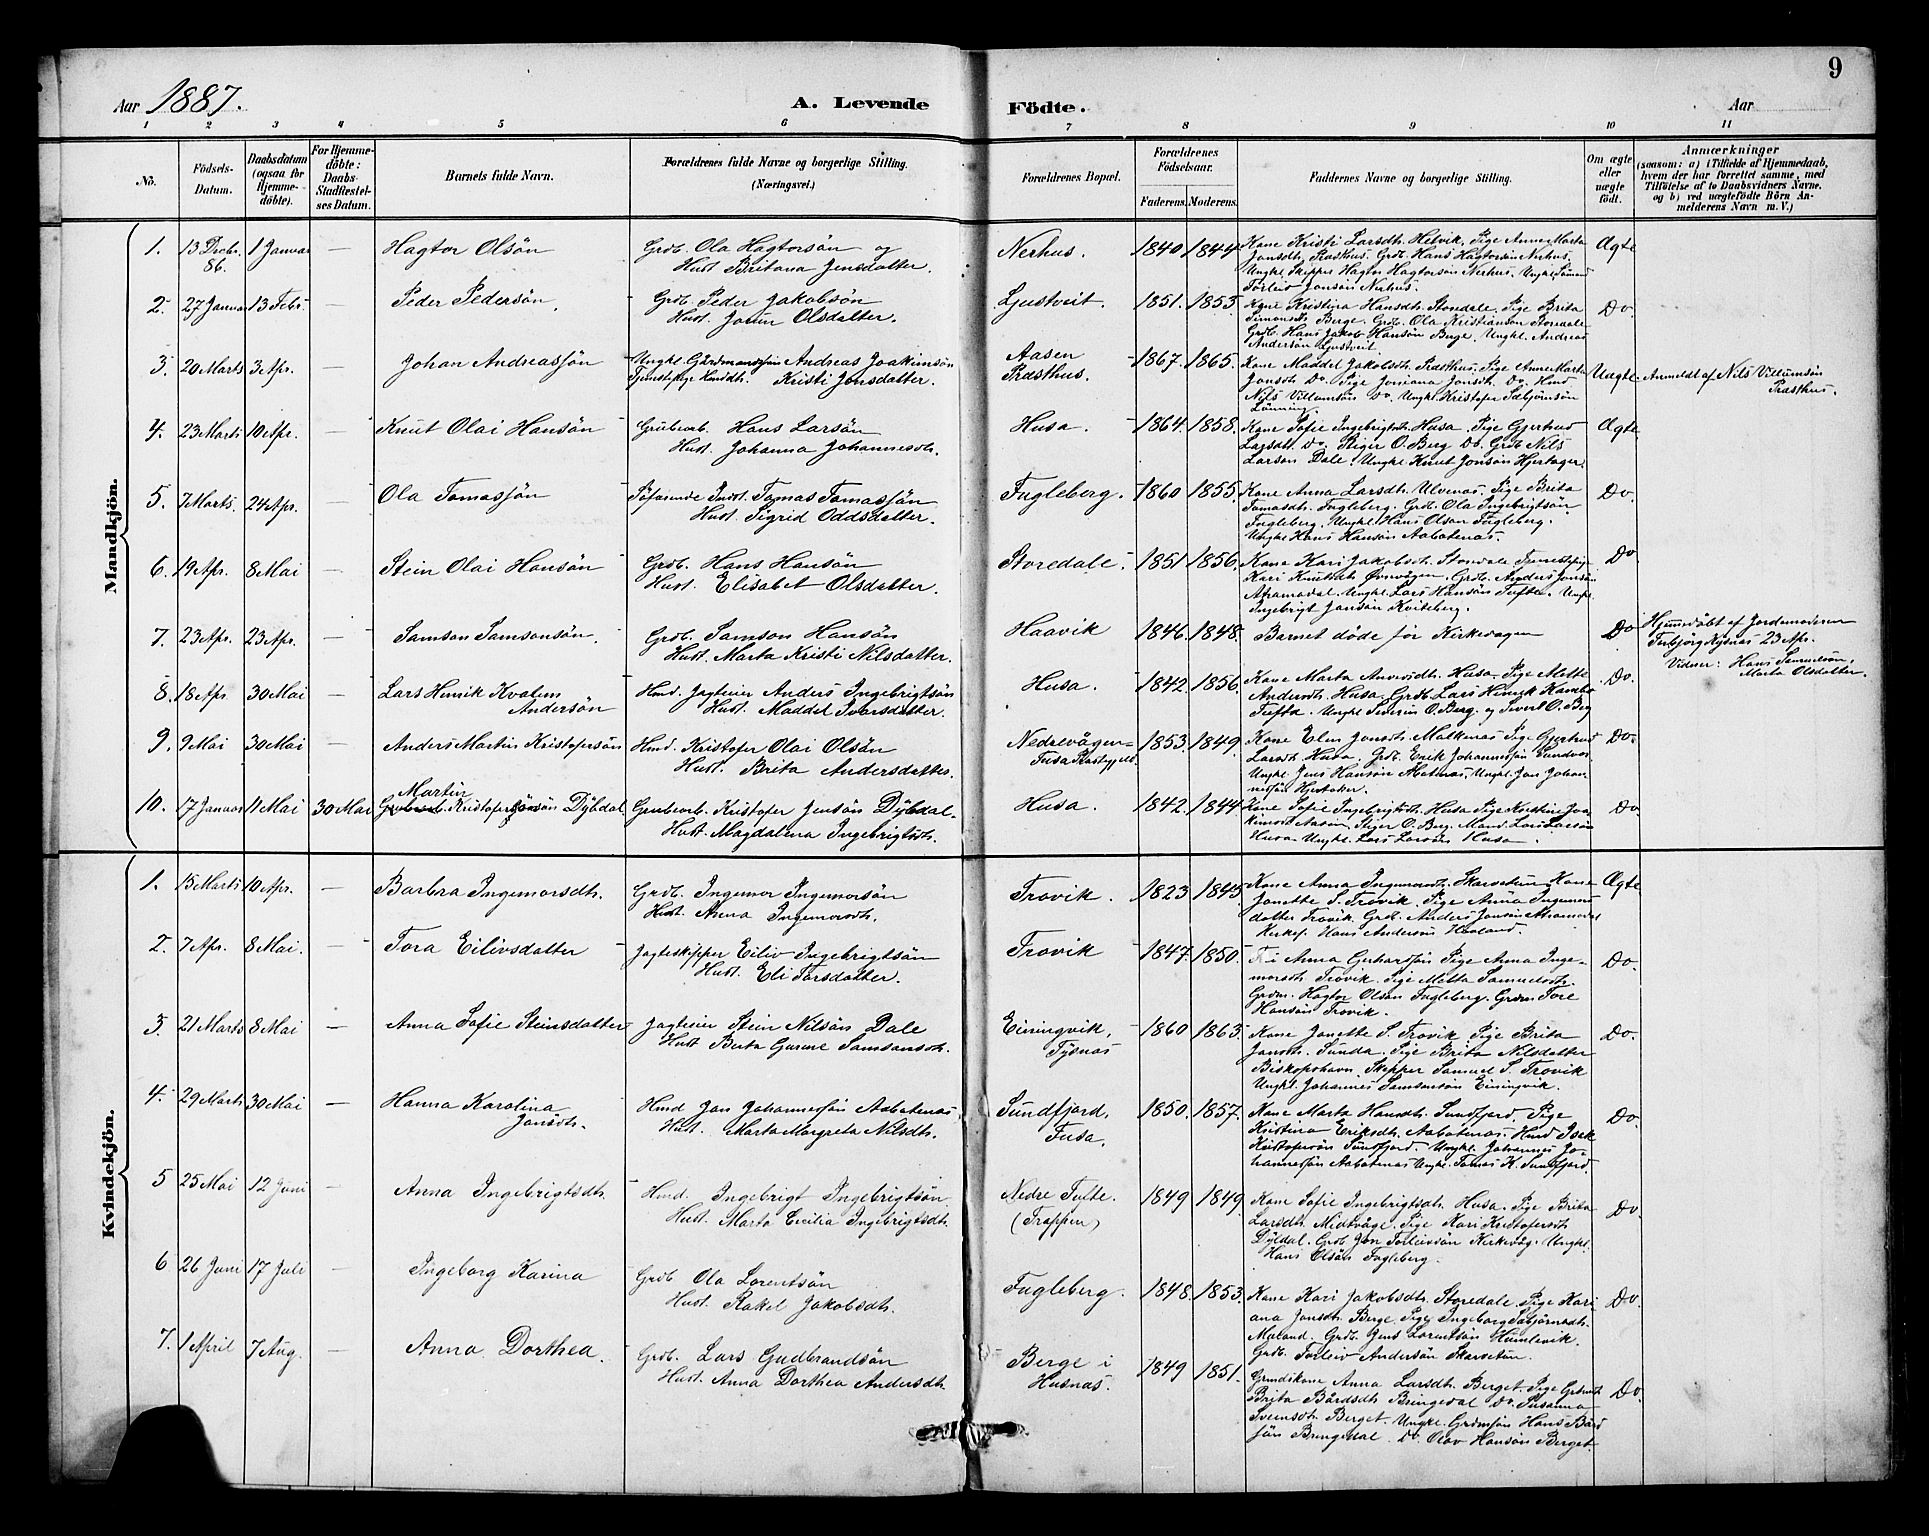 9
Aar 1887. A. Levende Födte. Aar
1 2 3 4 5 6 7 8 9 10 11
No. Födsels-Datum. Daabsdatum (ogsaa for Hjemme-döbte). For Hjemme-döbte: Daabs-Stadfæstel-ses Datum. Barnets fulde Navn. Forældrenes fulde Navne og borgerlige Stilling. (Næringsvei.) Forældrenes Bopæl. Forældrenes Födselsaar. Faderens. Moderens. Faddernes Navne og borgerlige Stilling. Om ægte eller uægte födt. Anmærkninger (saasom: a) i Tilfælde af Hjemmedaab, hvem der har forrettet samme, med Tilföielse af to Daabsvidners Navne, og b) ved uægtefödte Börn An-melderens Navn m. V.)
Mandkjön.
1. 13 Decbr. 86. 1 Januar — Hagtor Olsön Grdb. Ola Hagtorsön og Hust. Britana Jensdatter. Nerhus. 1840 1844 Kone Kristi Larsdth. Helvik. Pige Anne Marta Jonsdth. Præsthus. Grdb. Hans Hagtorsön Nerhus. Ungkl. Skipper Hagtor Hagtorsön Nerhus. Torleiv Jonsön Nerhus. Ægte
2. 27 Januar 13 Febr. — Peder Pedersön. Grdb. Peder Jakobsön Hust. Jorun Olsdatter. Ljustveit. 1851. 1853. Kone Kristina Hansdth. Storedale. Pige Brita Simonsdth. Berge. Grdb. Ola Kristianson Storedale. Grdb. Hans Jakob Hansön Berge. Ungkl. Andreas Andersön Ljustveit. Do.
3. 20 Marts 3 Apr. — Johan Andreassön Ungkl. Gårdmandssön Andreas Joakimsön Tjenstepige Kristi Jonsdatter. Aasen Præsthus. 1867. 1865. Kone Maddel Jakobsdth. Præsthus. Pige Anne Marta Jonsdth. Do. Pige Joniana Jonsdth. Do. Hmd. Nils Villumsön Do. Ungkl. Kristofer Sæbjörnsön Lönning. Uægte. Anmeldt af Nils Villumsön Præsthus.
4. 23 Marts 10 Apr. — Knut Olai Hansön Grubearb. Hans Larsön Hust. Johanna Johannesdth. Husa. 1864. 1858. Kone Sofie Ingebrigtsdth. Husa. Pige Gjertrud Larsdth. Do. Stiger O. Berg Do. Grdb. Nils Larson Dale. Ungkl. Knut Jonsön Hjertager. Ægte
5. 7 Marts. 24 Apr. — Ola Tomassön Söfarende Indst. Tomas Tomassön Hust. Sigrid Oddsdatter. Fugleberg. 1860 1855. Kone Anna Larsdth. Ulvenæs. Pige Brita Tomasdth. Fugleberg. Grdb. Ola Ingebrigtsön Fugleberg. Ungkl. Hans Olson Fugleberg. Ungkl. Hans Hansön Aabotenæs. Do.
6. 19 Apr. 8 Mai — Stein Olai Hansön Grdb. Hans Hansön Hust. Elisabet Olsdatter. Storedale. 1851 1856. Kone Kari Jakobsdth. Storedale. Tjenestepige Kari Knutsdth. Övrevågen. Grdb. Anders Jonsön Aframadal. Ungkl. Lars Hansön Tufte. Ungkl. Ingebrigt Jonsön Kviteberg. Do
7. 23 Apr. 23 Apr. — Samson Samsonsön. Grdb. Samson Hansön Hust. Marta Kristi Nilsdatter. Haavik 1846. 1848. Barnet döde för Kirkevagen Do Hjemdöbt af Jordemoderen Torbjörg Nysnæs 23 Apr. Vidner: Hans Samuelsön, Marta Olsdatter.
8. 18 Apr 30 Mai — Lars Henrik Kvalem Andersön Hmd. Jagteier Anders Ingebrigtsön Hust. Maddel Ivarsdatter. Husa. 1842. 1856. Kone Marta Husa. Pige Mette Andersdth. Husa. Grdb. Lars Henrik Tufta. Ungkl. Severin O. Berg. og Sivert O. Berg Do.
9. 9 Mai 30 Mai Anders Martin Kristofersön Hmd. Kristofer Olai Olsön Hust. Brita Andersdatter. Nedrevågen Fusa Præstegjeld. 1853. 1849. Kone Elen Jonsdth. Malkenæs. Pige Gjertrud Larsdth. Husa. Grdb. Erik Johannessön Sundvor. Ungkl. Jens Hansön Abotnæs. Ungkl. Jon Johannesön Hjertaker. Do.
10. 17 Januar 11 Mai 30 Mai Martin Kristofersön Dybdal Grubearb. Kristofer Jensön Dybdal Hust. Magdalena Ingebrigtsdth. Husa. 1842. 1844 Kone Sofie Ingebrigtsdth. Husa. Pige Kristine Joakimsdth Aasen. Stiger O. Berg. Mand. Lars Larsön Husa. Ungkl. Lars Larsön Husa. Do.
Kvindekjön.
1. 15 Marts 10 Apr. — Barbra Ingemorsdth. Grdb. Ingemor Ingemorsön Hust. Anna Ingemorsdth. Trovik. 1823 1845. Kone Anna Ingemorsdth. Skarvetun. Kone Janette S. Trovik. Pige Anna Ingemorsdatter Trovik. Grdb. Anders Jonsön Aframadal Kirkes. Hans Andersön Haaland. Ægte
2. 7 Apr. 8 Mai. — Tora Eilivsdatter Jagteskipper Eiliv Ingebrigtsön Hust. Eli Tarsdatter. Trovik 1847. 1850. Anna Gerhardsön Pige Anna Ingemorsdth. Trovik. Pige Metta Samuelsdth. Grdm. Hagtor Olsön Fugleberg. Grdm Tore Hansön Trovik. Do.
3. 21 Marts 8 Mai — Anna Sofie Steinsdatter Jagteier Stein Nilsön Dale Hust Berta Gurine Samsonsdth. Einingvik, Tysnæs 1860 1863. Kone Janette S. Trovik. Pige Brita Jonsdth. Sunda. Pige Brita Nilsdatter Biskopshavn. Skipper Samuel S. Trovik Ungkl. Johannes Samsonsön Einingvik. Do.
4. 29 Marts 30 Mai — Hanna Karolina Jonsdth. Hmd Jon Johannessön Aabotenæs Hust. Marta Margreta Nilsdth. Sundfjord, Fusa. 1850. 1857. Kone Marta Hansdth. Sundfjord. Pige Kristina Eriksdth. Aabotenæs. Hmd Isak Kristofersön Sundfjord. Ungkl. Johannes Johannessön Aabotenæs Ungkl. Tomas K. Sundfjord. Do.
5 25 Mai 12 Juni — Anna Ingebrigtsdth. Hmd. Ingebrigt Ingebrigtsön Hust. Marta Cecilia Ingebrigtsdth. Nedre Tufte. (Trappen) 1849 1849 Kone Sofie Ingebrigtsdth. Husa. Pige Brita Larsdth. Midtvåge. Pige Kari Kristofersdth Dybdal. Grdb. Jon Torleivsön Kirkevåg. Ungkl. Hans Olsön Fugleberg. Do.
6 26 Juni 17 Juli — Ingeborg Karina Grdb Ola Lorentsön Hust. Rakel Jakobsdth. Fugleberg. 1848. 1853. Kone Kari Jakobsdth. Storedale. Pige Kariana Jonsdth. Berge. Pige Ingeborg Sæbjörnsdth. Maland. Grdb. Jens Lorentsön Humlevik. Grdb. Torleiv Andersön Skarvetun. Do.
7. 1 April 7 Aug. — Anna Dorthea. Grdb. Lars Gudbrandsön Hust. Anna Dorthea Andersdth. Berge i Husnæs. 1849 1851. Grmdskone Anna Larsdth. Berget. Pige Brita Bårdsdth Bringedal Do. Susanna Sveinsdth. Berget. Ungkl. Grdmsön Hans Bårdsön Bringedal. Do. Olav Hansön Berget Do.